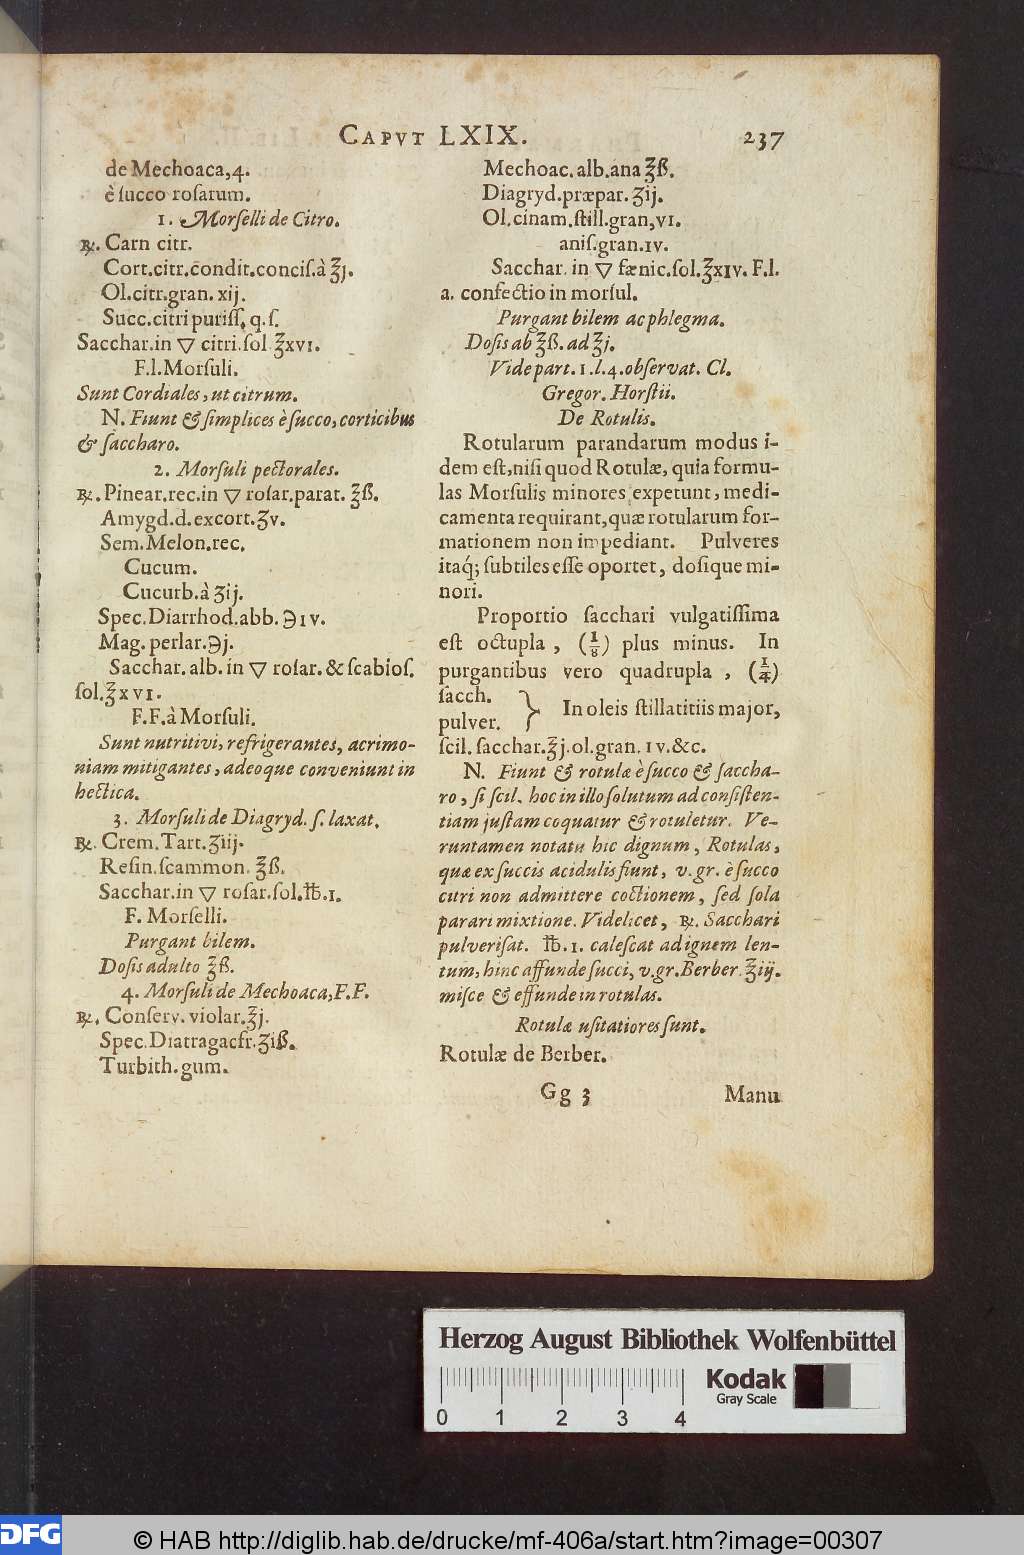 CAPVT LXIX. 237
de Mechoaca,4.
è ſucco roſarum.
1. Morſelli de Citro.
℞. Carn citr.
Cort.citr.condit.conciſ.à ℥j.
Ol.citr.gran. xij.
Succ.citri puriſſ. q.ſ.
Sacchar.in 🜄 citri.ſol ℥xvı.
F.l.Morſuli.
Sunt Cordiales, ut citrum.
N. Fiunt & ſimplices è ſucco, corticibus
& ſaccharo.
2. Morſuli pectorales.
℞. Pinear.rec.in 🜄 roſar.parat. ℥ß.
Amygd.d.excort.ʒv.
Sem.Melon.rec.
Cucum.
Cucurb.à ʒij.
Spec.Diarrhod.abb.℈ıv.
Mag. perlar.℈j.
Sacchar. alb. in 🜄 roſar. & ſcabioſ.
ſol.℥xvı.
F.F.à Morſuli.
Sunt nutritivi, refrigerantes, acrimo-
niam mitigantes, adeoque conveniunt in
hectica.
3. Morſuli de Diagryd. ſ. laxat.
℞. Crem.Tart.ʒiij.
Reſin.ſcammon. ℥ß.
Sacchar.in 🜄 roſar.ſol.℔.ı.
F. Morſelli.
Purgant bilem.
Doſis adulto ℥ß.
4. Morſuli de Mechoaca,F.F.
℞. Conſerv. violar.℥j.
Spec.Diatragacfr.ʒiß.
Turbith.gum.
Mechoac.alb.ana ℥ß.
Diagryd.præpar.ʒij.
Ol.cinam.ſtill.gran,vı.
aniſ.gran.ıv.
Sacchar. in 🜄 fænic.ſol.℥xıv. F.l.
a. confectio in morſul.
Purgant bilem ac phlegma.
Doſis ab ℥ß. ad ℥j.
Vide part. 1. l. 4. obſervat. Cl.
Gregor. Horſtii.
De Rotulis.
Rotularum parandarum modus i-
dem eſt,niſi quod Rotulæ, quia formu-
las Morſulis minores expetunt, medi-
camenta requirant,quæ rotularum for-
mationem non impediant. Pulveres
itaq́; ſubtiles eſſe oportet, doſique mi-
nori.
Proportio ſacchari vulgatiſſima
eſt octupla, (1/8) plus minus. In
purgantibus vero quadrupla, (1/4)
ſacch.
pulver. } In oleis ſtillatitiis major,
ſcil. ſacchar.℥j.ol.gran. ıv.&c.
N. Fiunt & rotulæ è ſucco & ſaccha-
ro, ſi ſcil. hoc in illo ſolutum ad conſiſten-
tiam juſtam coquatur & rotuletur. Ve-
runtamen notatu hic dignum, Rotulas,
quæ ex ſuccis acidulis fiunt, v.gr. è ſucco
citri non admittere coctionem, ſed ſola
parari mixtione. Videlicet, ℞. Sacchari
pulveriſat. ℔.ı. caleſcat ad ignem len-
tum, hinc affunde ſucci, v.gr.Berber.℥iij.
miſce & effunde in rotulas.
Rotulæ uſitatiores ſunt.
Rotulæ de Berber.
Gg 3 Manu
Herzog August Bibliothek Wolfenbüttel
0 1 2 3 4
Kodak
Gray Scale
DFG
© HAB http://diglib.hab.de/drucke/mf-406a/start.htm?image=00307